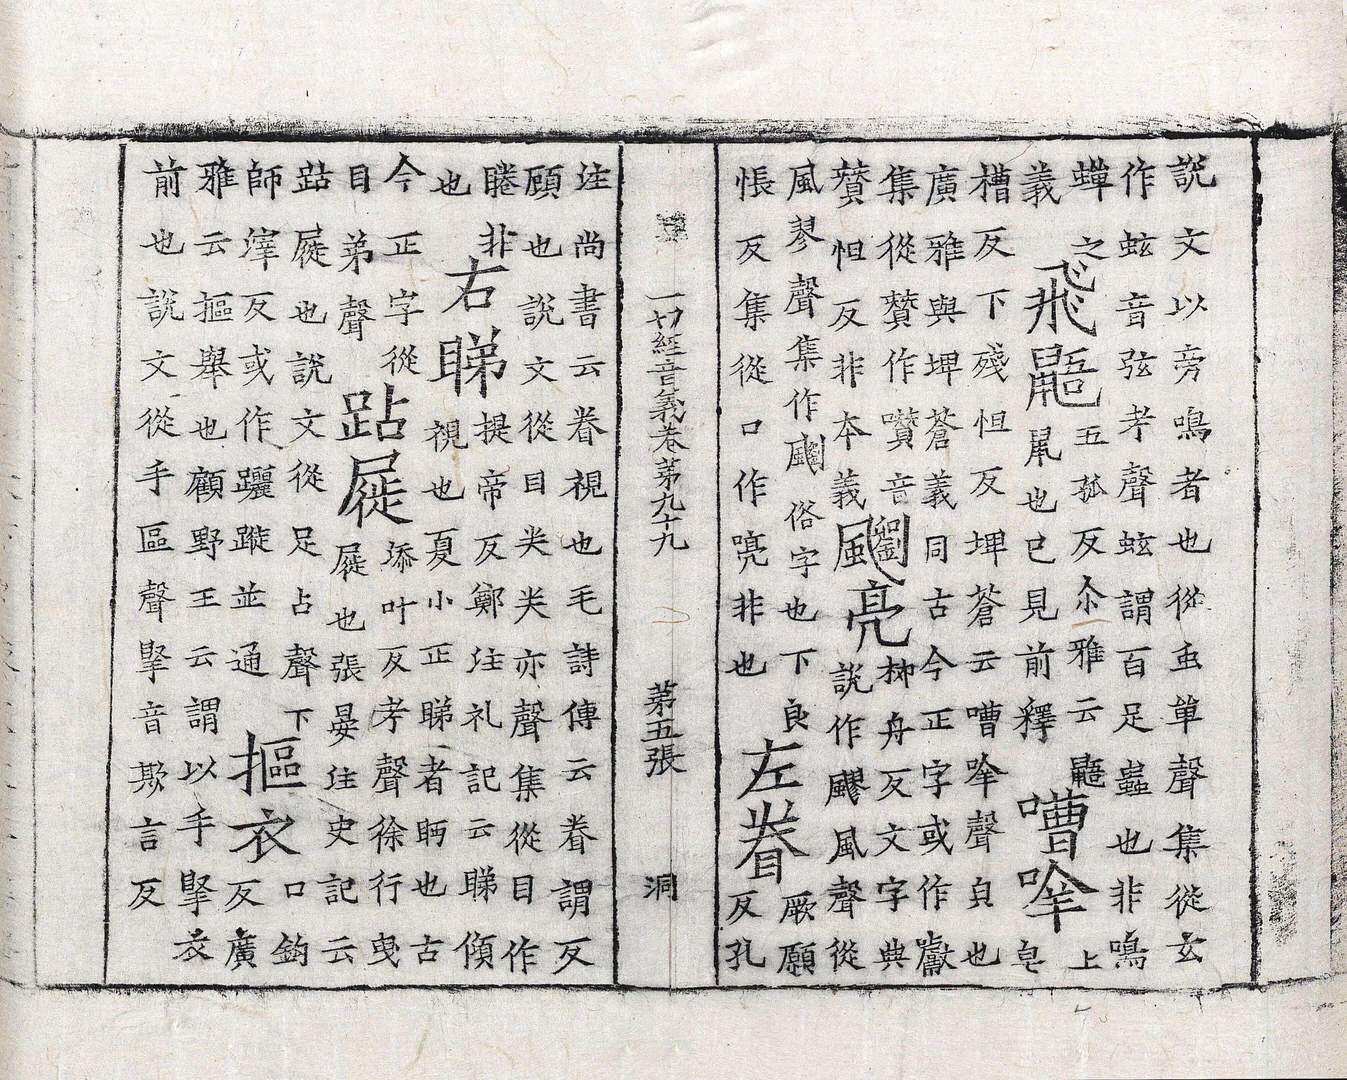 説文以旁鳴者也從虫單聲集從玄
作蚿音弦考聲蚿謂百足蟲也非鳴
蟬之
義
飛鼯
五孤反尒雅云鼯
鼠也已見前釋
嘈啐
上
皂
槽反下殘怛反埤蒼云嘈啐聲皃也
廣雅與埤蒼義同古今正字或作𡅽
集從贊作囋音
賛怛反非本義
飀亮
柳舟反文字典
説作飂風聲從
風翏聲集作飀俗字也下良
悵反集從口作喨非也
左眷
厥願
反孔
一切經音義卷第九十九 第五張 洞
注尚書云眷視也毛詩傳云眷謂反
顧也説文從目龹龹亦聲集從目作
睠非
也
右睇
提帝反鄭注礼記云睇傾
視也夏小正睇者眄也古
今正字從
目弟聲
跕屣
添叶反考聲徐行曳
屣也張晏注史記云
跕屣也説文從足占聲下
師滓反或作躧蹝並通
摳衣
口鉤
反廣
雅云摳舉也顧野王云謂以手掔衣
前也説文從手區聲掔音欺言反